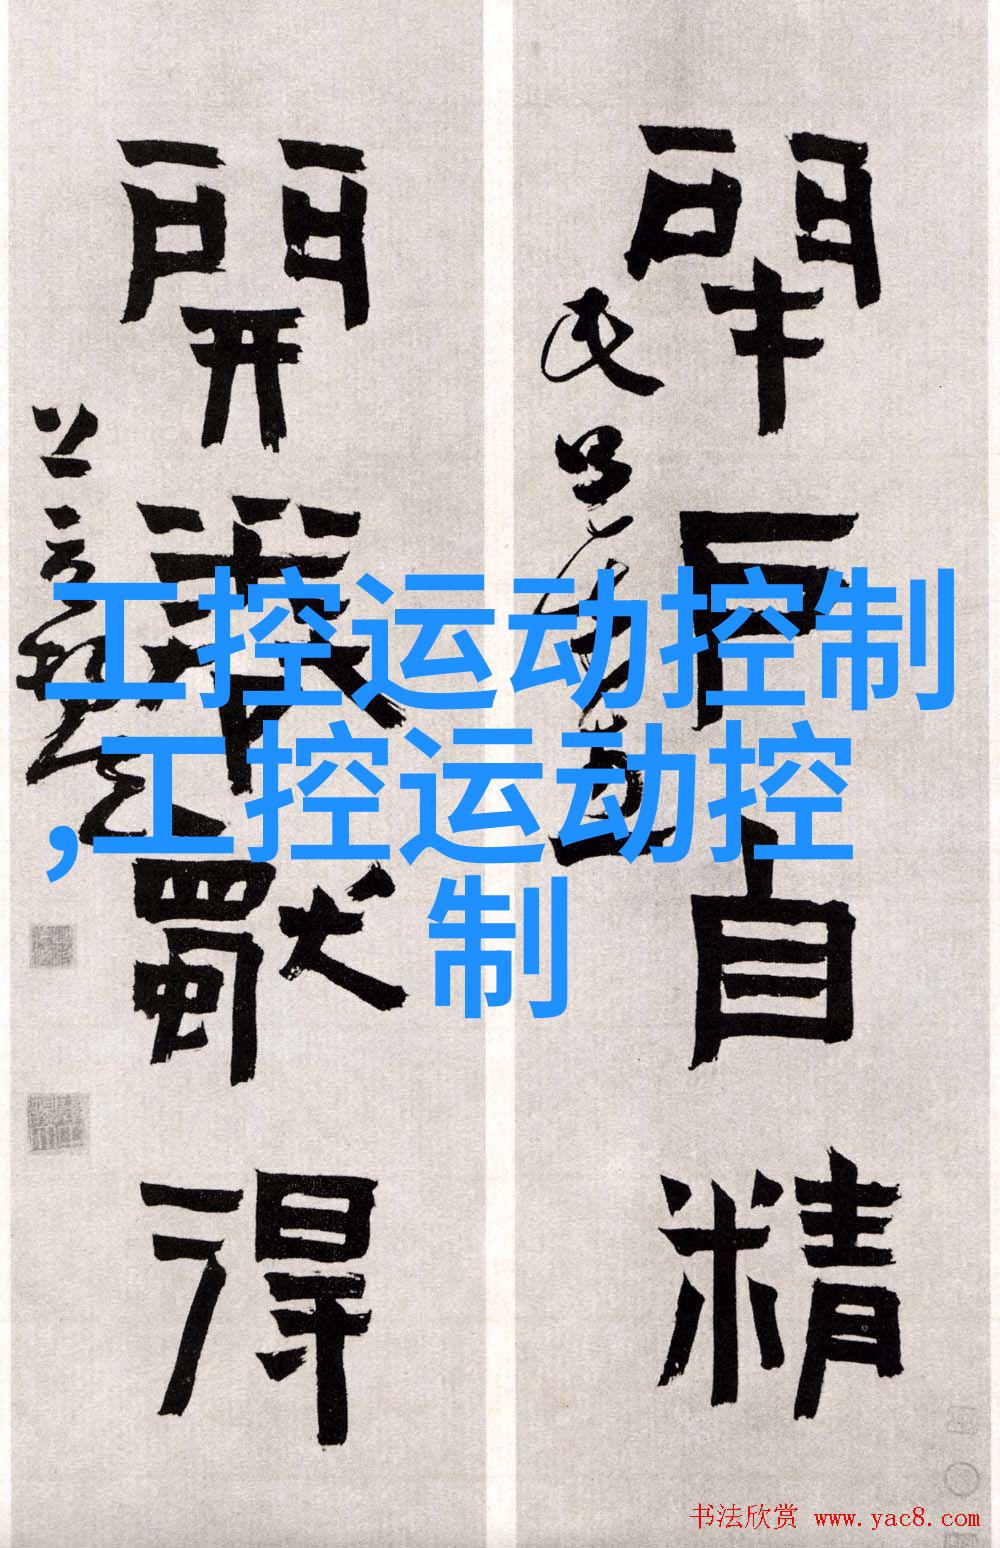 閉戶自精
開卷獨得
工控运动控制
,工控运动控
制
书法欣赏 www.yac8.com